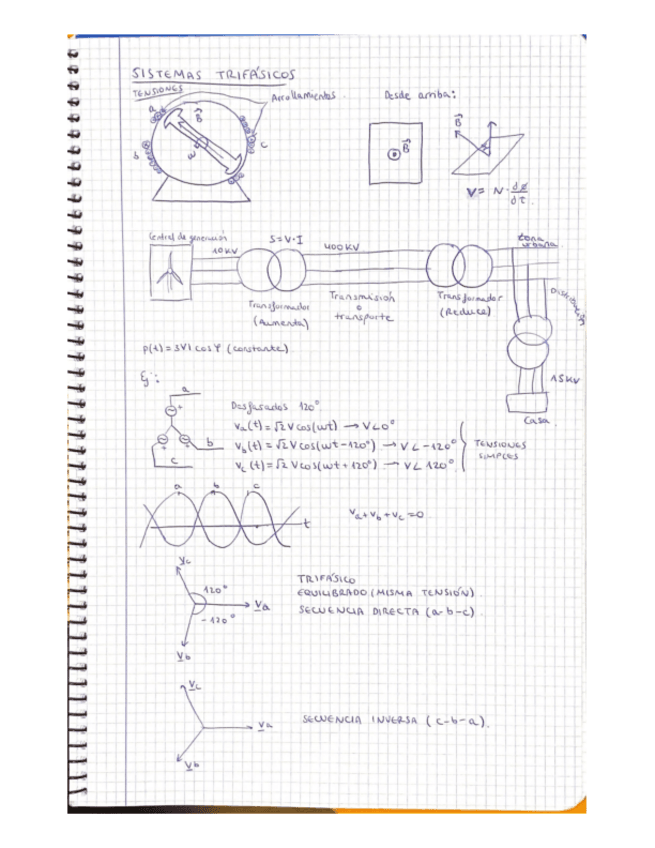 SISTEMAS TRIFÁSICOS
TENSIONES
Arrollamientos
Desde arriba:
a
B
w
b
c
B
B
V = N · dø/dt
Central de generación
10KV
S=V·I
400KV
zona urbana
Transformador (Aumenta)
Transmisión o transporte
Transformador (Reduce)
Distribución
15KV
Casa
p(t) = 3VI cos φ (constante)
Ej:
a
b
c
Desfasados 120°
va(t) = √2 V cos(wt) → V∠0°
vb(t) = √2 V cos(wt-120°) → V∠-120°
vc(t) = √2 V cos(wt+120°) → V∠120°
TENSIONES SIMPLES
a
b
c
t
va+vb+vc=0
Vc
120°
Va
-120°
Vb
TRIFÁSICO
EQUILIBRADO (MISMA TENSIÓN)
SECUENCIA DIRECTA (a-b-c)
Vc
Va
Vb
SECUENCIA INVERSA (c-b-a).